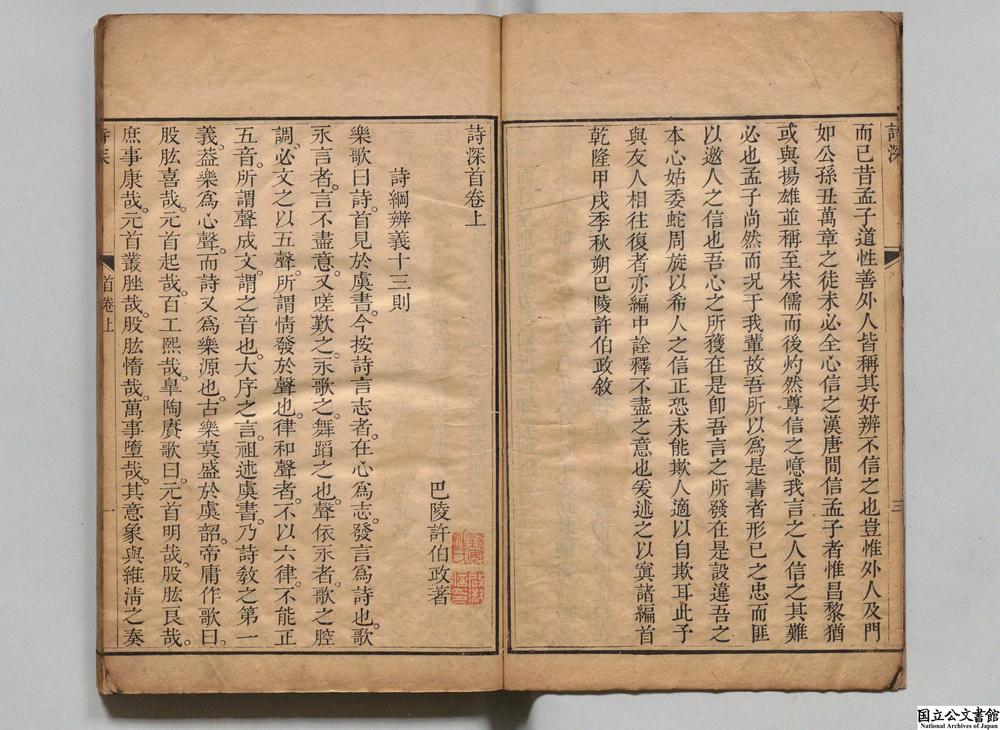 詩深
三
而已昔孟子道性善外人皆稱其好辨不信之也豈惟外人及門
如公孫丑萬章之徒未必全心信之漢唐間信孟子者惟昌黎猶
或與揚雄並稱至宋儒而後灼然尊信之噫我言之人信之其難
必也孟子尚然而况于我輩故吾所以為是書者形已之忠而匪
以邀人之信也吾心之所獲在是卽吾言之所發在是設違吾之
本心姑委蛇周旋以希人之信正恐未能欺人適以自欺耳此予
與友人相往復者亦編中詮釋不盡之意也爰述之以寘諸編首
乾隆甲戌季秋朔巴陵許伯政敘
詩深首卷上
巴陵許伯政著
詩綱辨義十三則
樂歌曰詩首見於虞書。今按詩言志者。在心爲志。發言爲詩也。歌
永言者。言不盡意。又嗟歎之。永歌之。舞蹈之也。聲依永者。歌之腔
調。必文之以五聲。所謂情發於聲也。律和聲者。不以六律。不能正
五音。所謂聲成文。謂之音也。大序之言。祖述虞書。乃詩敎之第一
義。葢樂爲心聲。而詩又爲樂源也。古樂莫盛於虞韶。帝庸作歌曰。
股肱喜哉。元首起哉。百工熙哉。臯陶賡歌曰。元首明哉。股肱良哉。
庶事康哉。元首叢脞哉。股肱惰哉。萬事墮哉。其意象與維清之奏
首卷上
一
国立公文書館
National Archives of Japan